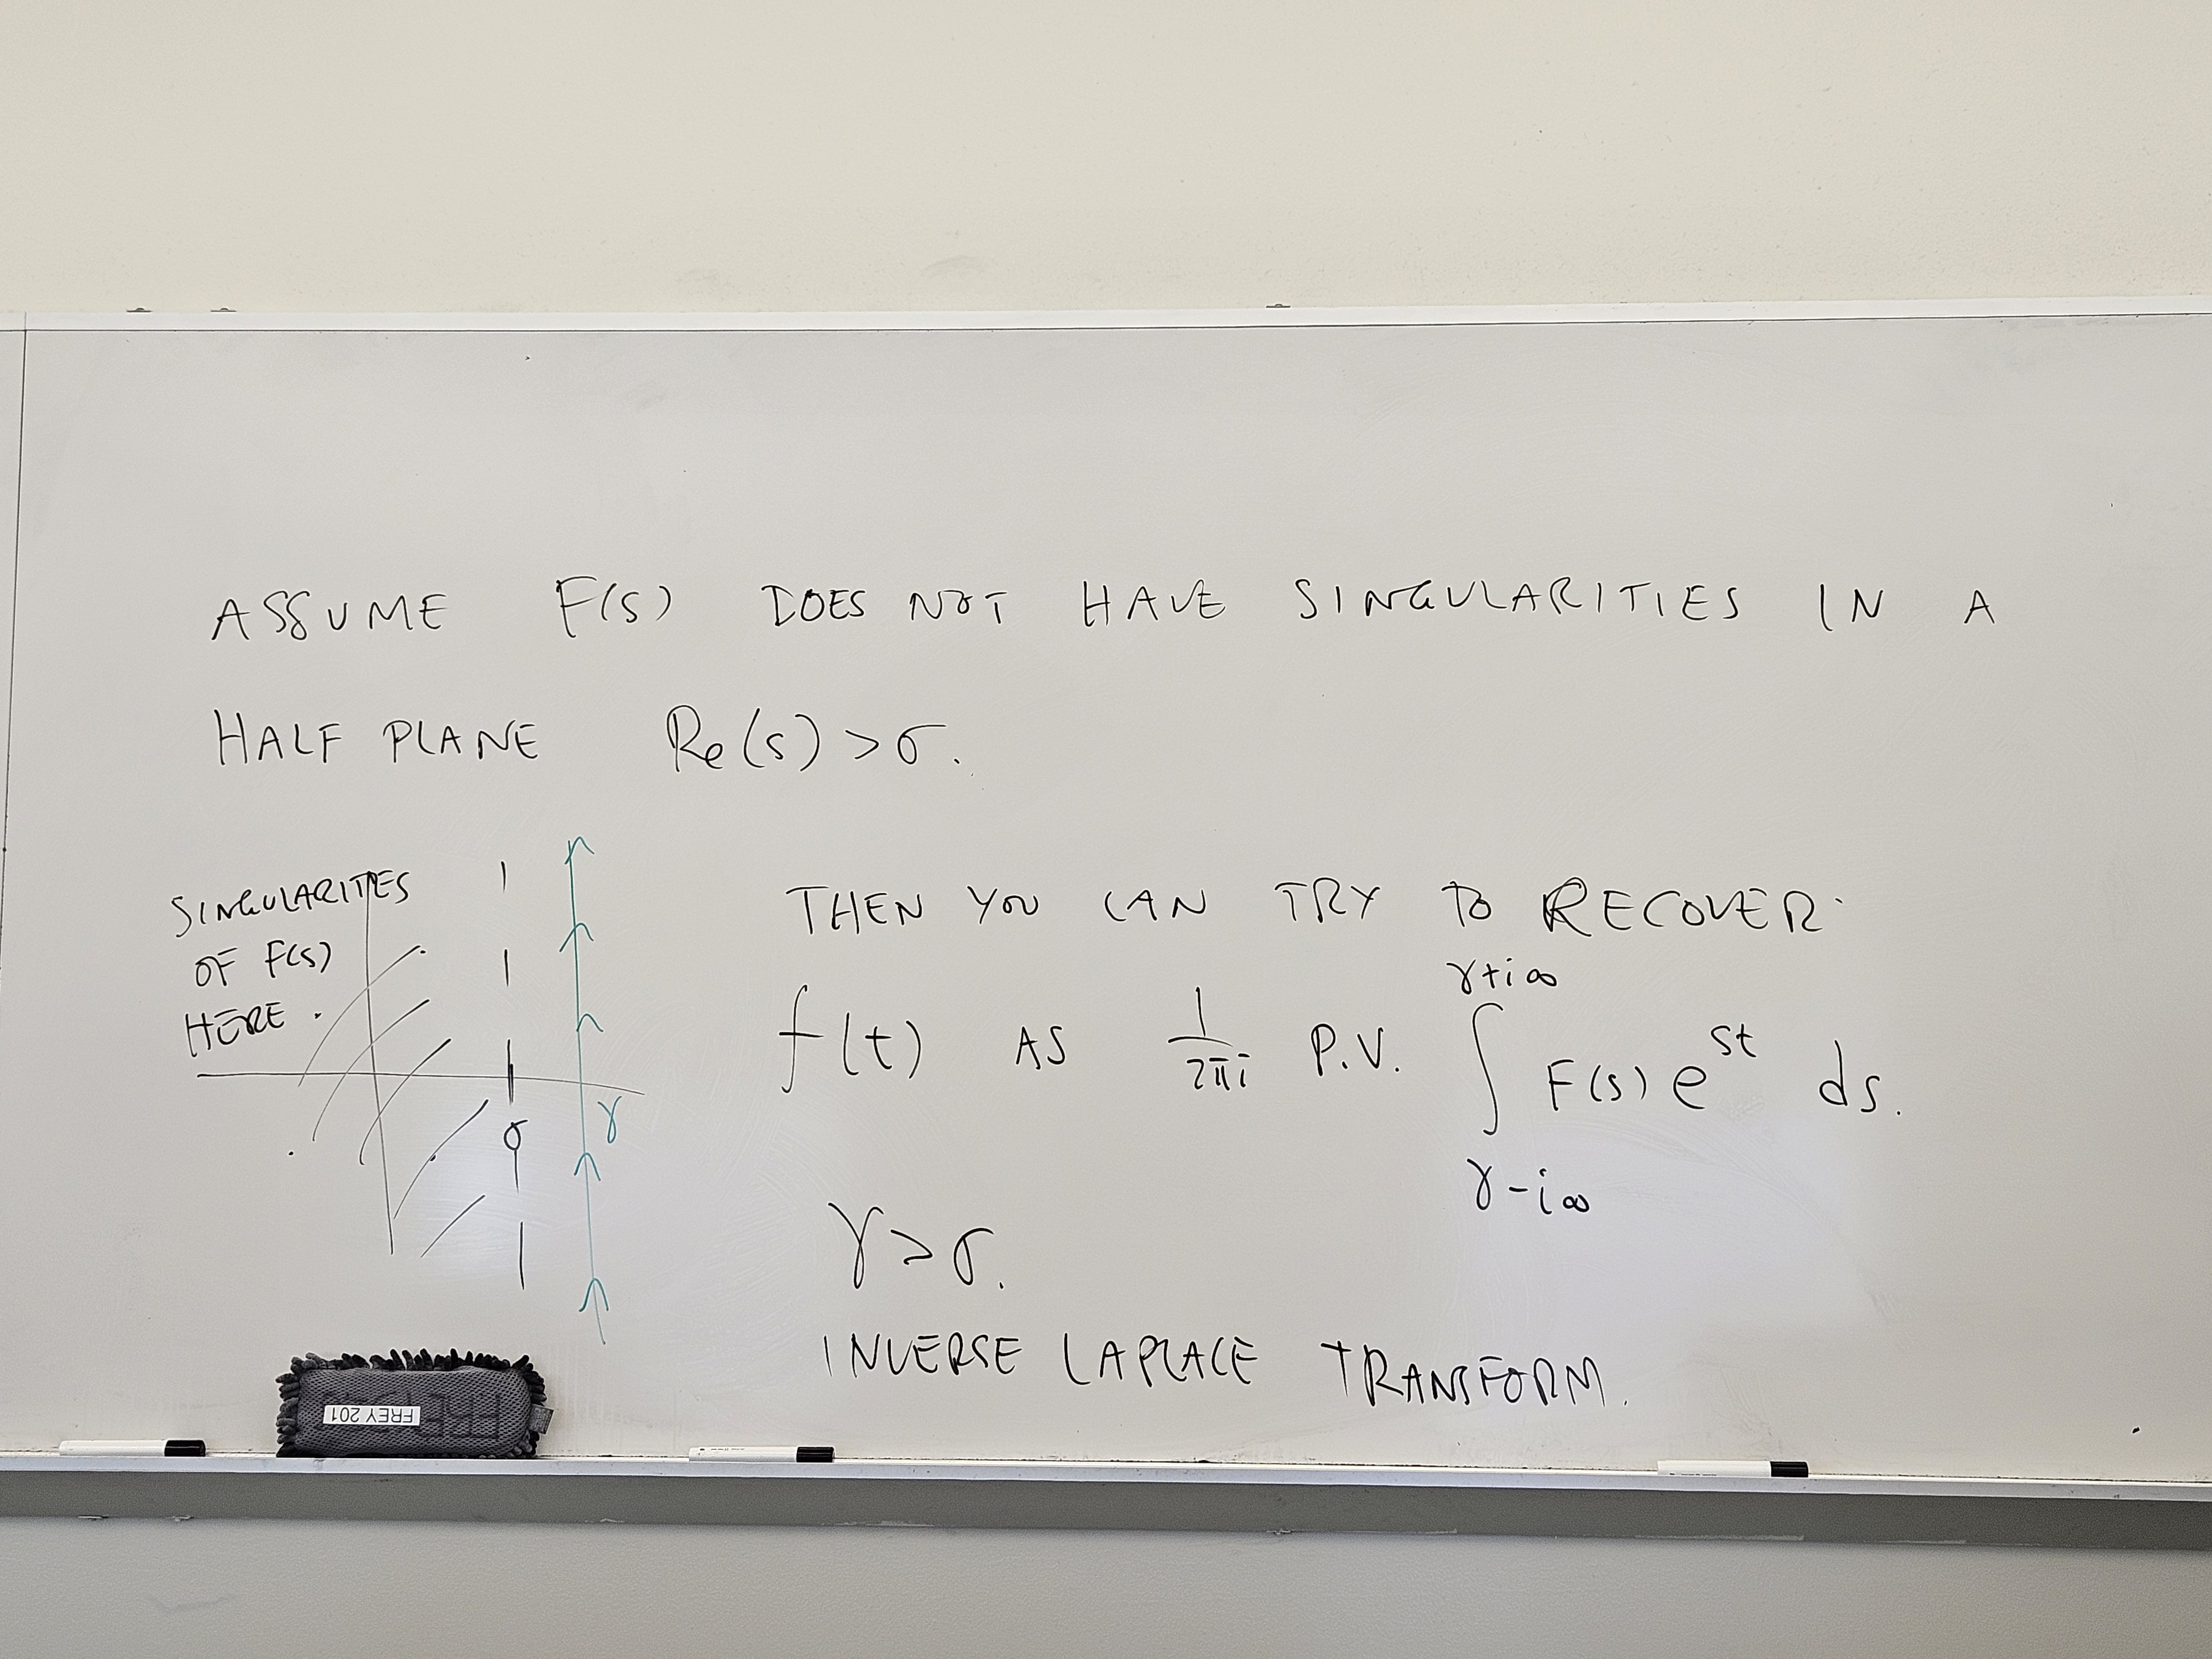 ASSUME F(s) DOES NOT HAVE SINGULARITIES IN A
HALF PLANE Re(s) > σ.
SINGULARITES
OF F(s)
HERE.
σ
γ
THEN YOU CAN TRY TO RECOVER
f(t) AS 1/2πi P.V. ∫ F(s) e^st ds.
γ+i∞
γ-i∞
γ > σ.
INVERSE LAPLACE TRANSFORM.
FREY 201